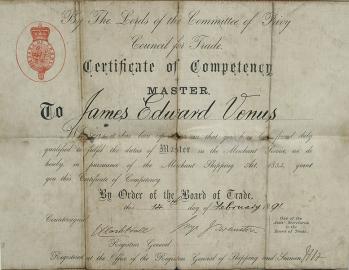 By The Lords of the Committee of Privy
Council for Trade.
Certificate of Competency
MASTER.
To James Edward Venus
Whereas it has been reported to us that you have been found duly
qualified to fulfil the duties of Master in the Merchant Service, we do
hereby, in pursuance of the Merchant Shipping Act, 1854, grant
you this Certificate of Competency.
By Order of the Board of Trade.
this 14th day of February 1891
Countersigned
Registrar General.
One of the
Joint Secretaries
to the
Board of Trade.
Registered at the Office of the Registrar General of Shipping and Seamen,